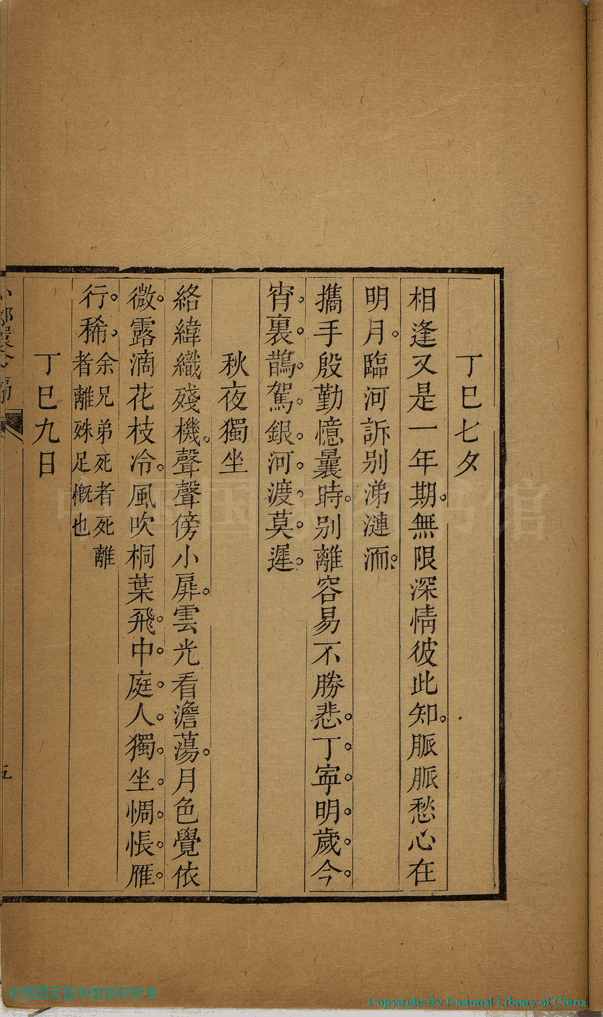 丁巳七夕
相逢又是一年期。無限深情彼此知。脈脈愁心在
明月。臨河訴别涕漣洏。
攜手殷勤憶曩時。别離容易不勝悲。丁寧明歲今
宵裏。鵲駕銀河渡莫遲。
秋夜獨坐
絡緯織殘機。聲聲傍小扉。雲光看澹蕩。月色覺依
微。露滴花枝冷。風吹桐葉飛。中庭人獨坐。惆悵雁
行稀。余兄弟死者死離
者離殊足慨也
丁巳九日
五
Copyright By National Library of China